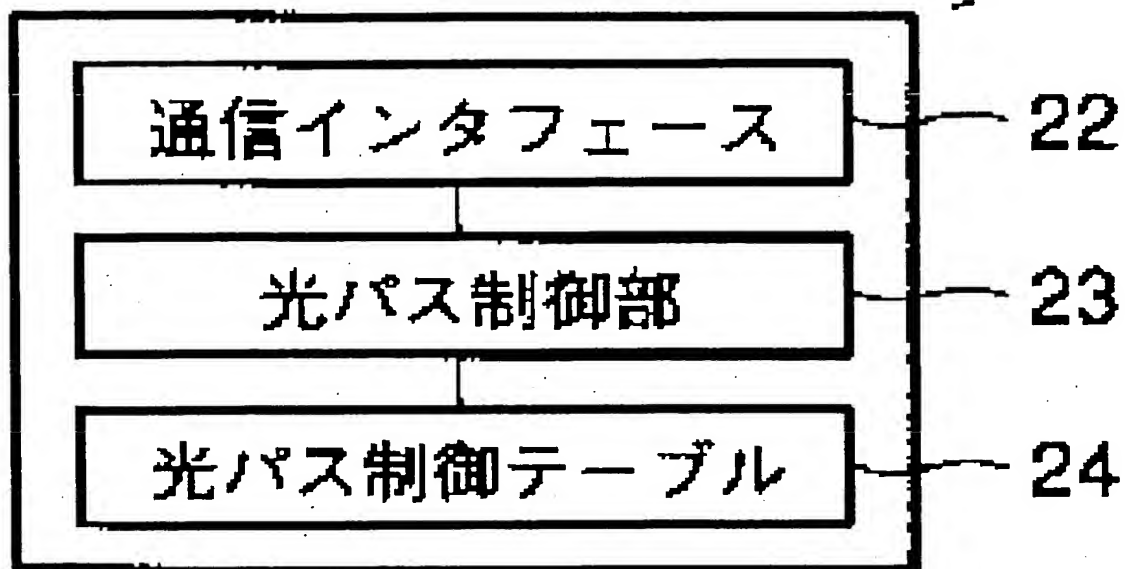 通信インタフェース 22
光パス制御部 23
光パス制御テーブル 24